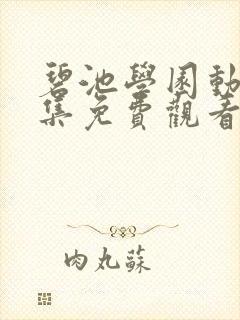 碧池學園動
集免費觀看
肉丸蘇